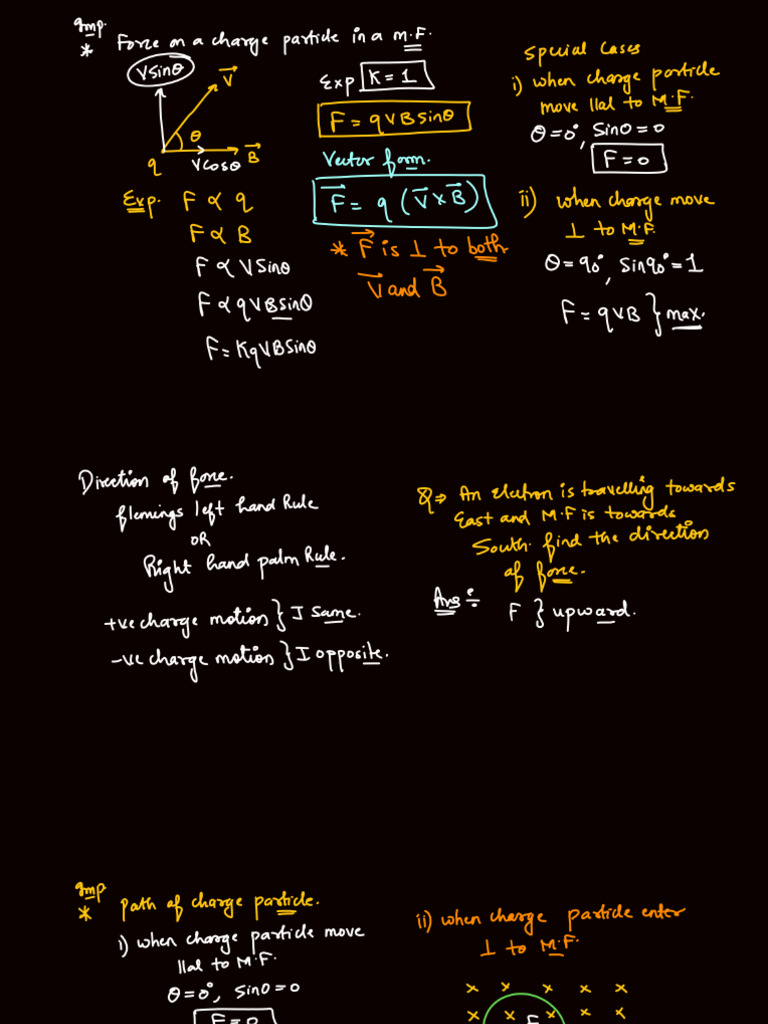 Imp.
* Force on a charge particle in a M.F.
Vsinθ
V
θ
q
Vcosθ
B
Exp. F ∝ q
F ∝ B
F ∝ VSinθ
F ∝ qVBsinθ
F = KqVBSinθ
Exp K = 1
F = qVBsinθ
Vector form.
F = q (V × B)
* F is ⊥ to both
V and B
Special Cases
i) when charge particle
move llal to M.F.
θ = 0°, Sinθ = 0
F = 0
ii) when charge move
⊥ to M.F.
θ = 90°, Sin90° = 1
F = qVB } max.
Direction of force.
flemings left hand Rule
OR
Right hand palm Rule.
+ve charge motion } I Same.
-ve charge motion } I opposite.
Q ⇒ An eletron is travelling towards
East and M.F is towards
South. find the direction
of force.
Ans ÷ F } upward.
Imp
* path of charge particle.
i) when charge particle move
llal to M.F.
θ = 0°, sinθ = 0
F = 0
ii) when charge particle enter
⊥ to M.F.
x x x x x
x x x x x
F